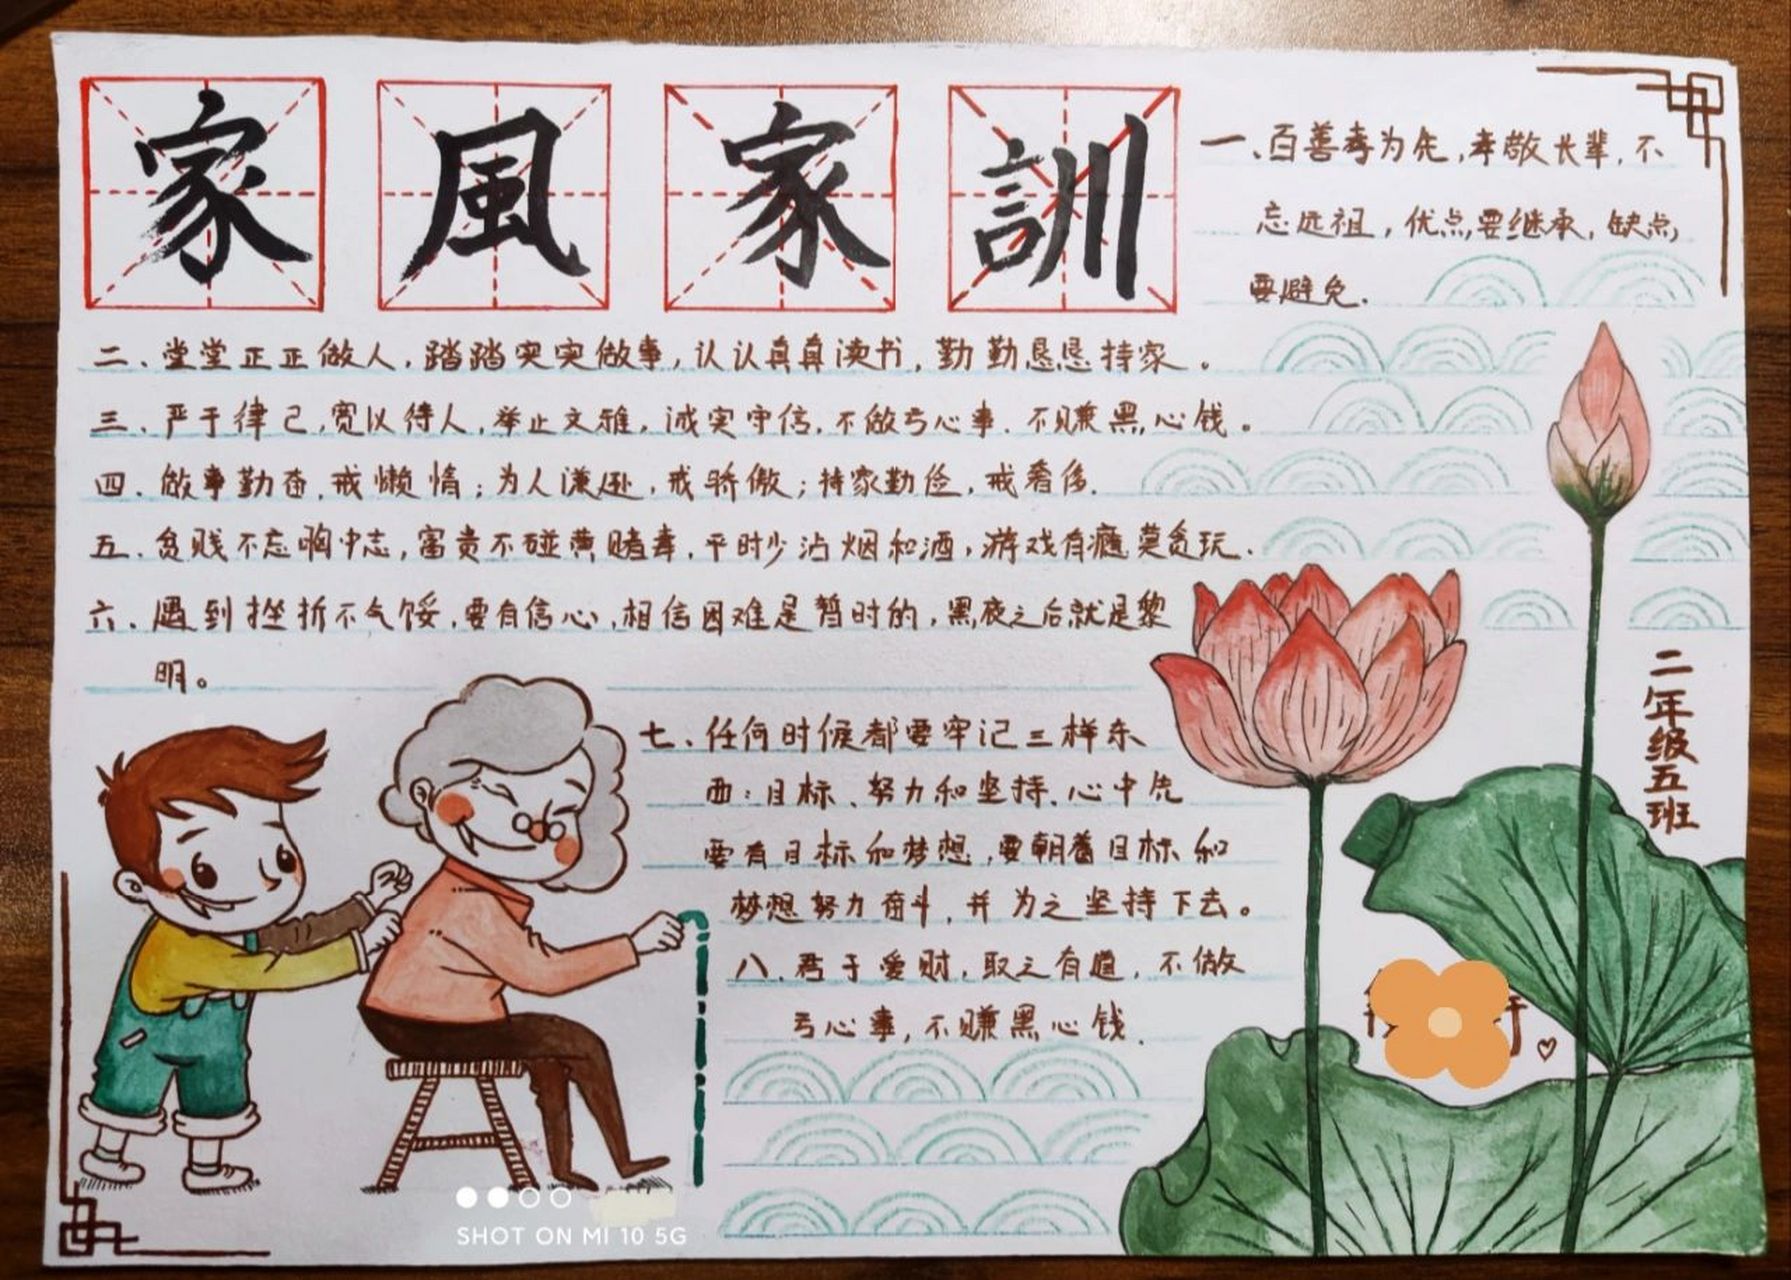 家風家訓
一、百善孝为先,孝敬长辈,不
忘远祖,优点要继承,缺点,
要避免.
二、堂堂正正做人,踏踏实实做事,认认真真读书,勤勤恳恳持家。
三、严于律己,宽以待人,举止文雅,诚实守信,不做亏心事.不赚黑心钱。
四、做事勤奋,戒懒惰;为人谦逊,戒骄傲;持家勤俭,戒奢侈.
五、贫贱不忘胸中志,富贵不碰黄赌毒,平时少沾烟和酒,游戏有瘾莫贪玩.
六、遇到挫折不气馁,要有信心,相信困难是暂时的,黑夜之后就是黎
明。
七、任何时候都要牢记三样东
西:目标、努力和坚持.心中先
要有目标和梦想,要朝着目标和
梦想努力奋斗,并为之坚持下去。
八、君子爱财,取之有道,不做
亏心事,不赚黑心钱.
二年级五班
SHOT ON MI 10 5G